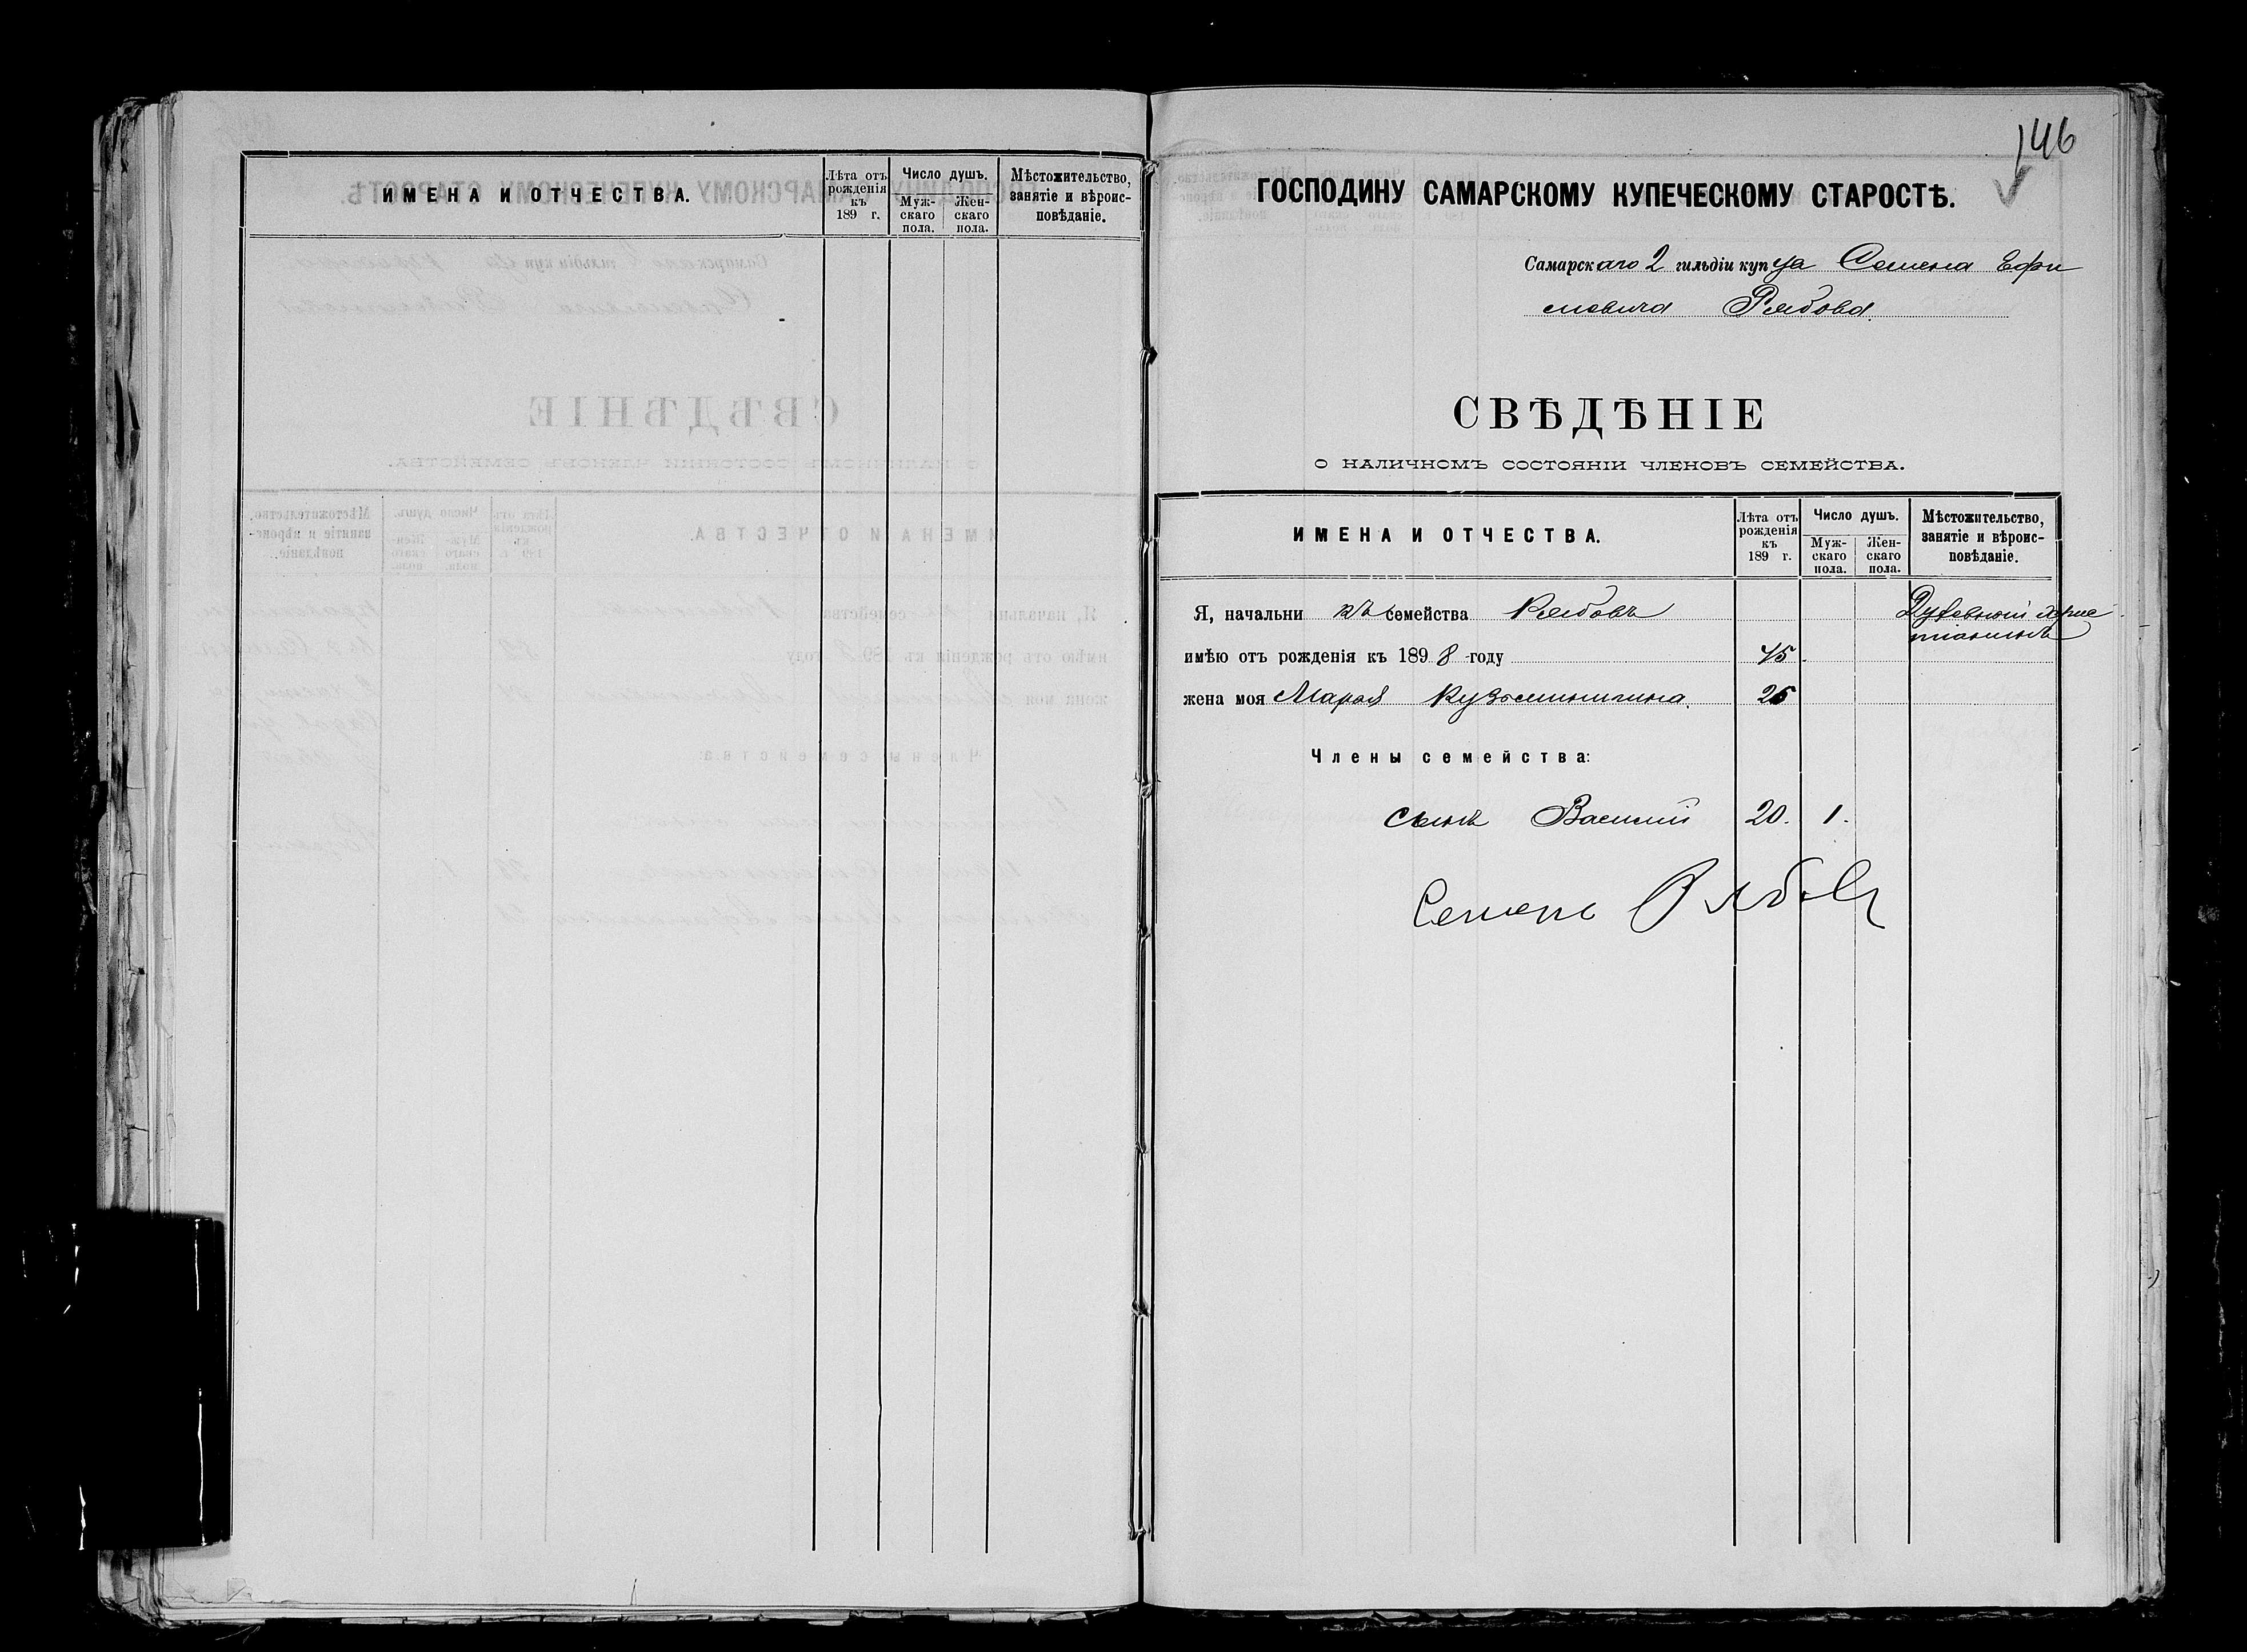 ИМЕНА И ОТЧЕСТВА.
Лѣта отъ рожденія къ 189 г.
Число душъ.
Мужскаго пола.
Женскаго пола.
Мѣстожительство, занятіе и вѣроисповѣданіе.
146
ГОСПОДИНУ САМАРСКОМУ КУПЕЧЕСКОМУ СТАРОСТѢ.
Самарскаго 2 гильдіи купца Семена Ефи
мовича Рябова.
СВѢДѢНІЕ
О НАЛИЧНОМЪ СОСТОЯНІИ ЧЛЕНОВЪ СЕМЕЙСТВА.
ИМЕНА И ОТЧЕСТВА.
Лѣта отъ рожденія къ 189 г.
Число душъ.
Мужскаго пола.
Женскаго пола.
Мѣстожительство, занятіе и вѣроисповѣданіе.
Я, начальникъ семейства Рябовъ Духовный христіанинъ
имѣю отъ рожденія къ 1898 году 45.
жена моя Марья Кузьминична. 26
Члены семейства:
сынъ Василій 20. 1.
Семенъ Рябовъ